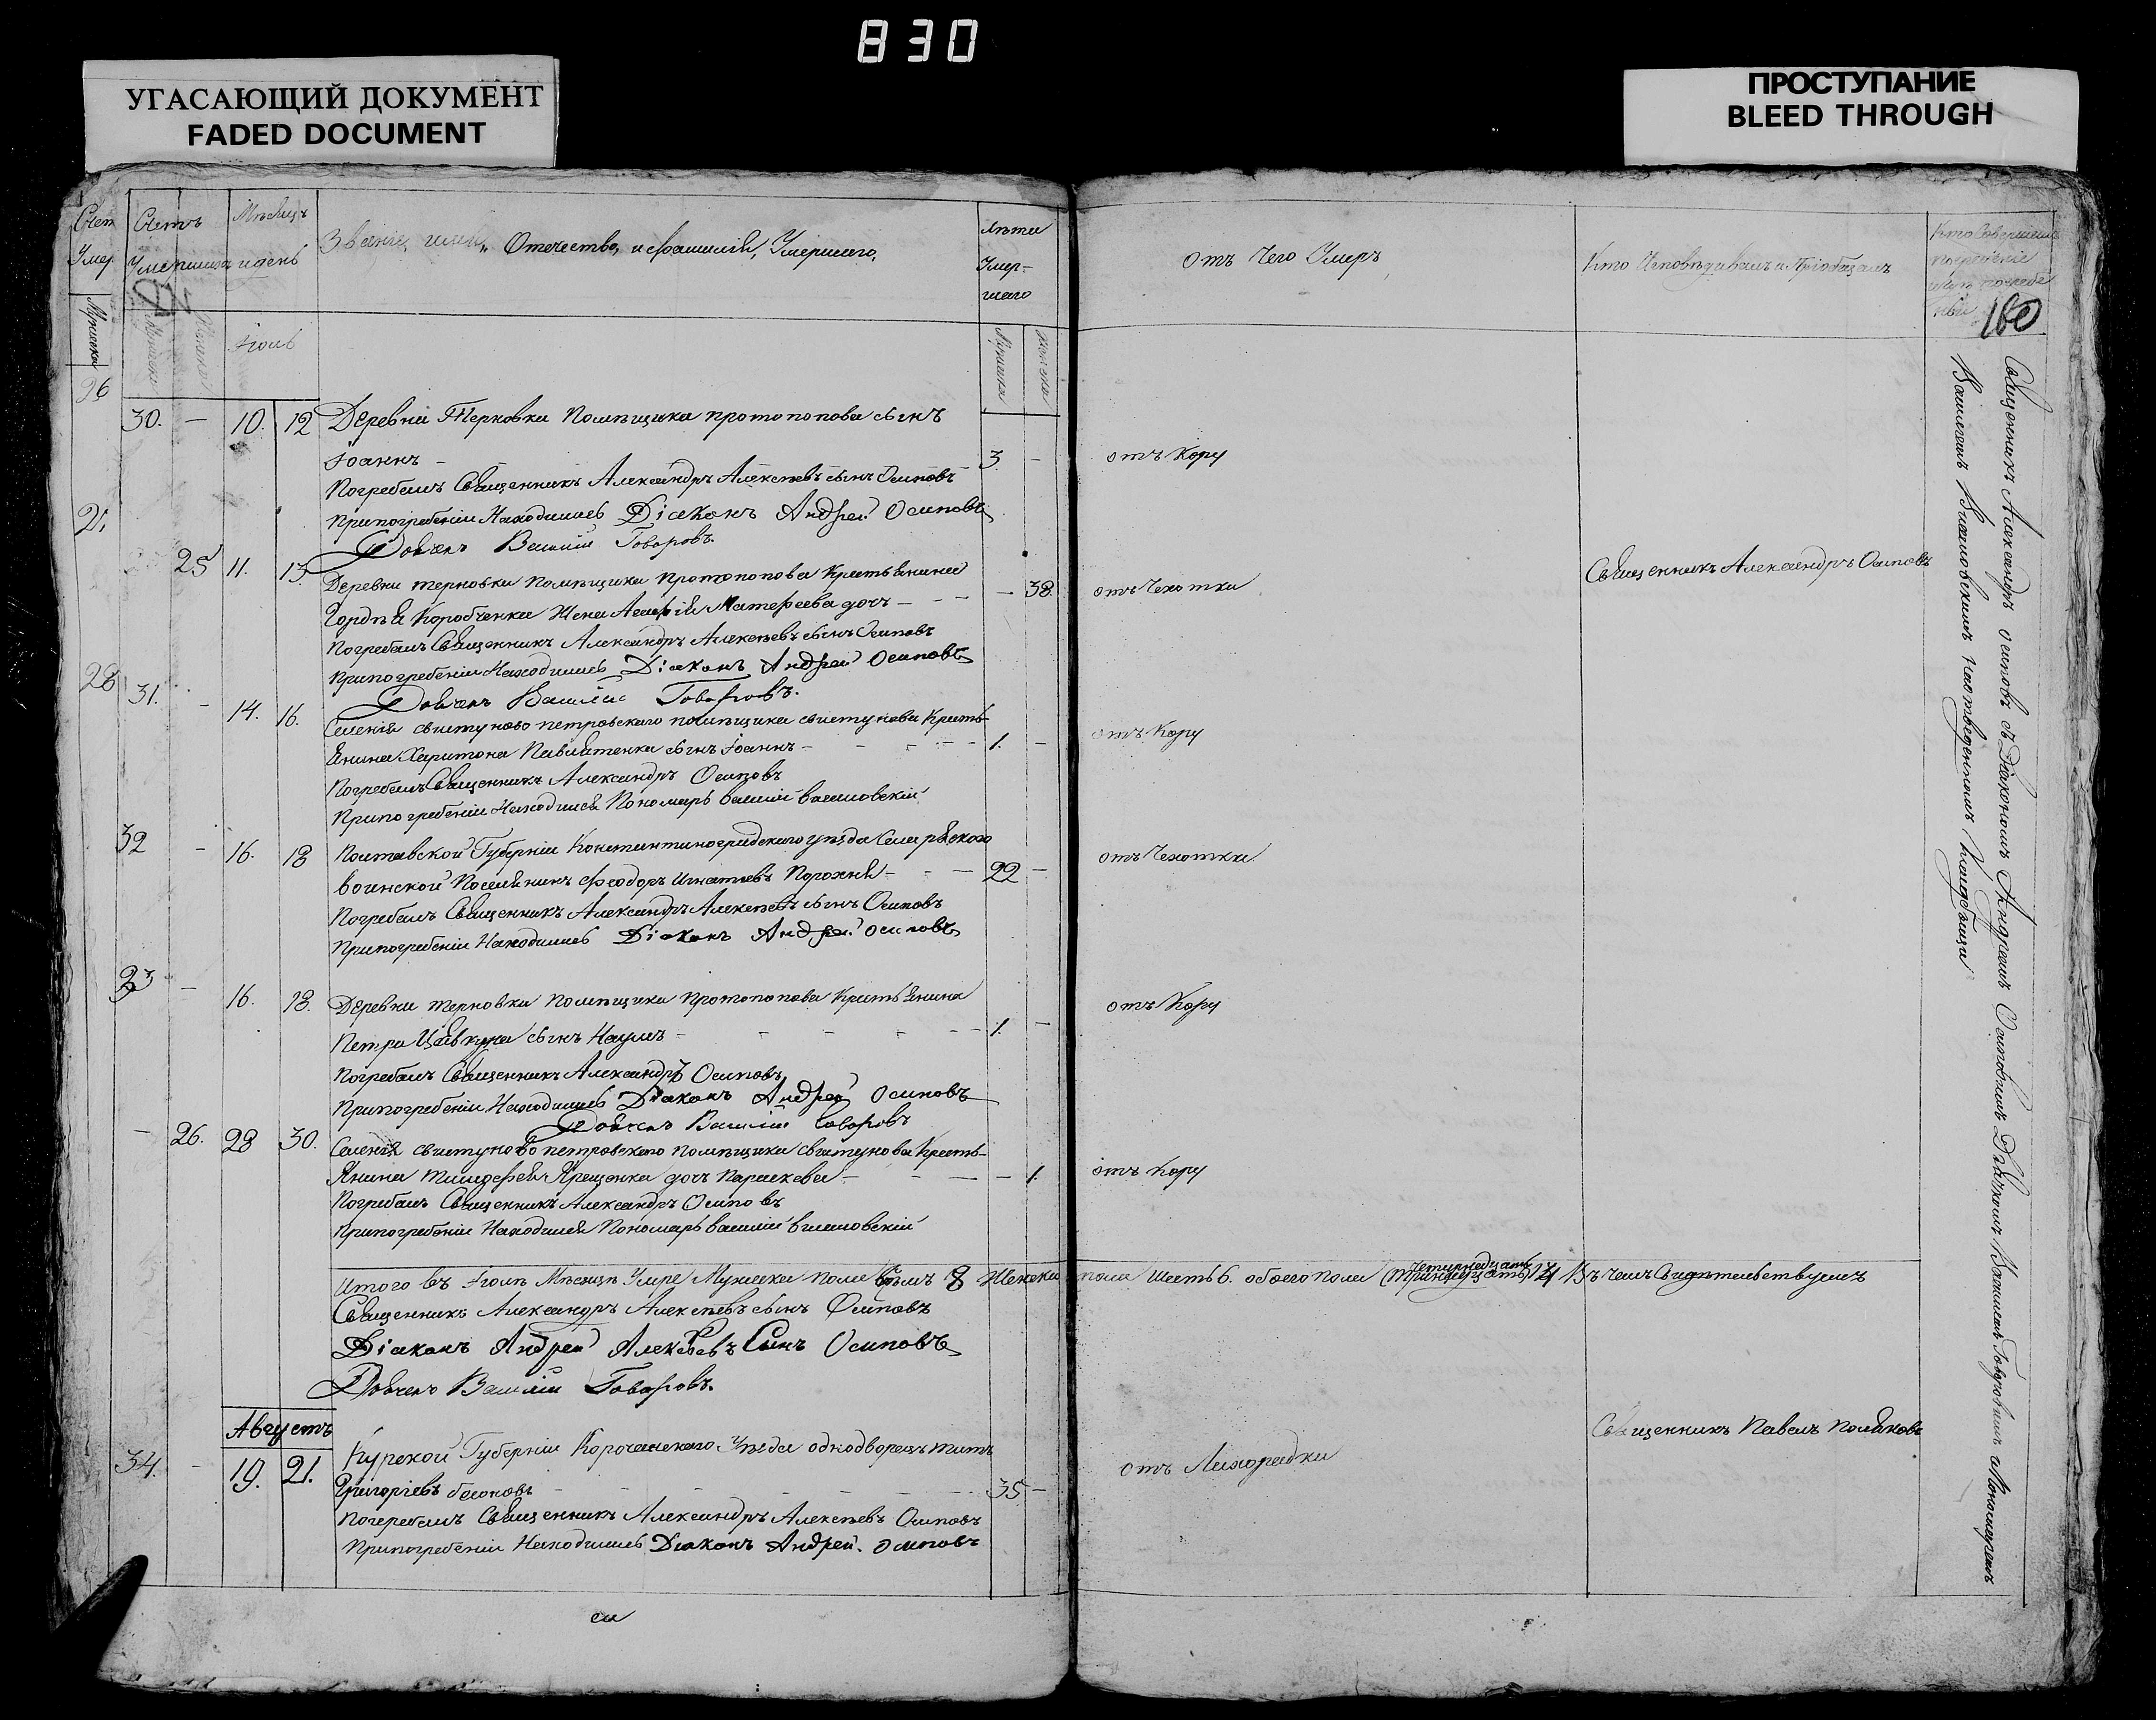 830
УГАСАЮЩИЙ ДОКУМЕНТ
FADED DOCUMENT
ПРОСТУПАНИЕ
BLEED THROUGH
Счет
Умер
Мужеска
Счетъ
Умершихъ
Мѣсяцъ
и день
Званіе, имя, Отечество, и фамилія, Умершаго,
лѣта
Умер-
шаго
Отъ Чего Умеръ
Кто Исповѣдивалъ и Пріобщалъ
Кто Совершалъ
погребеніе
160
Іюль
26
30. — 10. 12 Деревни Терновки Помѣщика протопопова сынъ
Іоаннъ — 3. — отъ Кору
Погребалъ Священникъ Александръ Алексѣевъ сынъ Осиповъ
При погребеніи Находились Діаконъ Андрей Осиповъ
Дьячекъ Василій Говоровъ.
25 11. 13. Деревни терновки помѣщика протопопова Крестьянина
Гордѣя Коробченка Жена Матфеева дочъ — — 38. отъ Чехотки
Священникъ Александръ Осиповъ
Погребалъ Священникъ Александръ Алексѣевъ сынъ Осиповъ
При погребеніи Находились Діаконъ Андрей Осиповъ
Дьячекъ Василій Говоровъ.
28
31. — 14. 16. Селенія свистуново петровскаго помѣщика свистунова Кресть-
янина Харитона Павлятенка сынъ Іоаннъ — 1. — отъ Кору
Погребалъ Священникъ Александръ Осиповъ
При погребеніи Находился Пономарь василій
32 — 16. 18 Полтавской Губерніи Константиноградскаго уѣзда
воинской Поселяникъ Феодоръ Игнатьевъ Порохня — 22 — отъ Чехотки
Погребалъ Священникъ Александръ Алексѣевъ сынъ Осиповъ
При погребеніи Находились Діаконъ Андрей Осиповъ
33 — 16. 18. Деревни терновки помѣщика Протопопова Крестьянина
Петра сынъ Наумъ — 1. — отъ Кору
Погребалъ Священникъ Александръ Осиповъ
При погребеніи Находились Діаконъ Андрей Осиповъ
Дьячекъ Василій Говоровъ
— 26. 28 30. Селенія свистуново петровскаго помѣщика свистунова Кресть-
янина Тимофея Ярещенка дочъ Параскева — — 1. отъ кору
Погребалъ Священникъ Александръ Осиповъ
При погребеніи Находился Пономарь василій
Итого въ Іюлѣ Мѣсяцѣ Умре Мужеска пола 8 Женска пола Шесть 6. обоего пола четырнадцать (тринадцать) 14 Въ чемъ Свидѣтельствуемъ
Священникъ Александръ Алексѣевъ сынъ Осиповъ
Діаконъ Андрей Алексѣевъ Сынъ Осиповъ
Дьячекъ Василій Говоровъ.
Августъ
34. — 19. 21. Курской Губерніи Корочанскаго Уѣзда однодворецъ титъ
Григоріевъ — 35 — отъ Лихорадки
Священникъ Павелъ Поляковъ
Погребалъ Священникъ Александръ Алексѣевъ Осиповъ
При погребеніи Находились Діаконъ Андрей Осиповъ
Священникъ Александръ осиповъ съ Діякономъ Андреемъ Осиповымъ Дьячкомъ Василіемъ Говоровымъ и Пономаремъ
Василіемъ Кладбищи